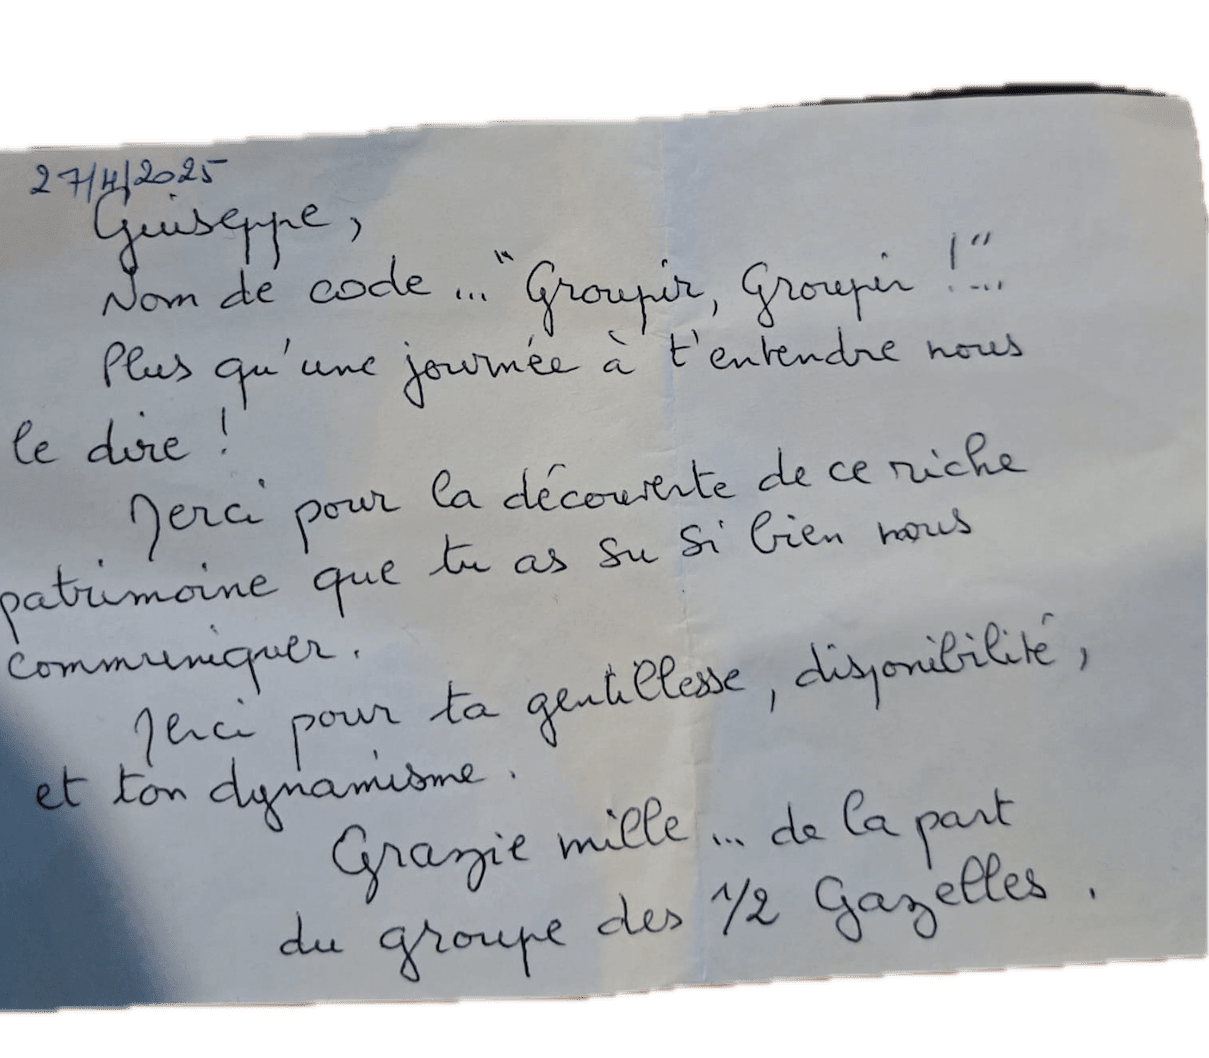 27/4/2025
Guiseppe,
Nom de code ... "Groupir, Groupir !"...
Plus qu'une journée à t'entendre nous
le dire !
Merci pour la découverte de ce riche
patrimoine que tu as su si bien nous
communiquer.
Merci pour ta gentillesse, disponibilité,
et ton dynamisme.
Grazie mille ... de la part
du groupe des 1/2 Gazelles.